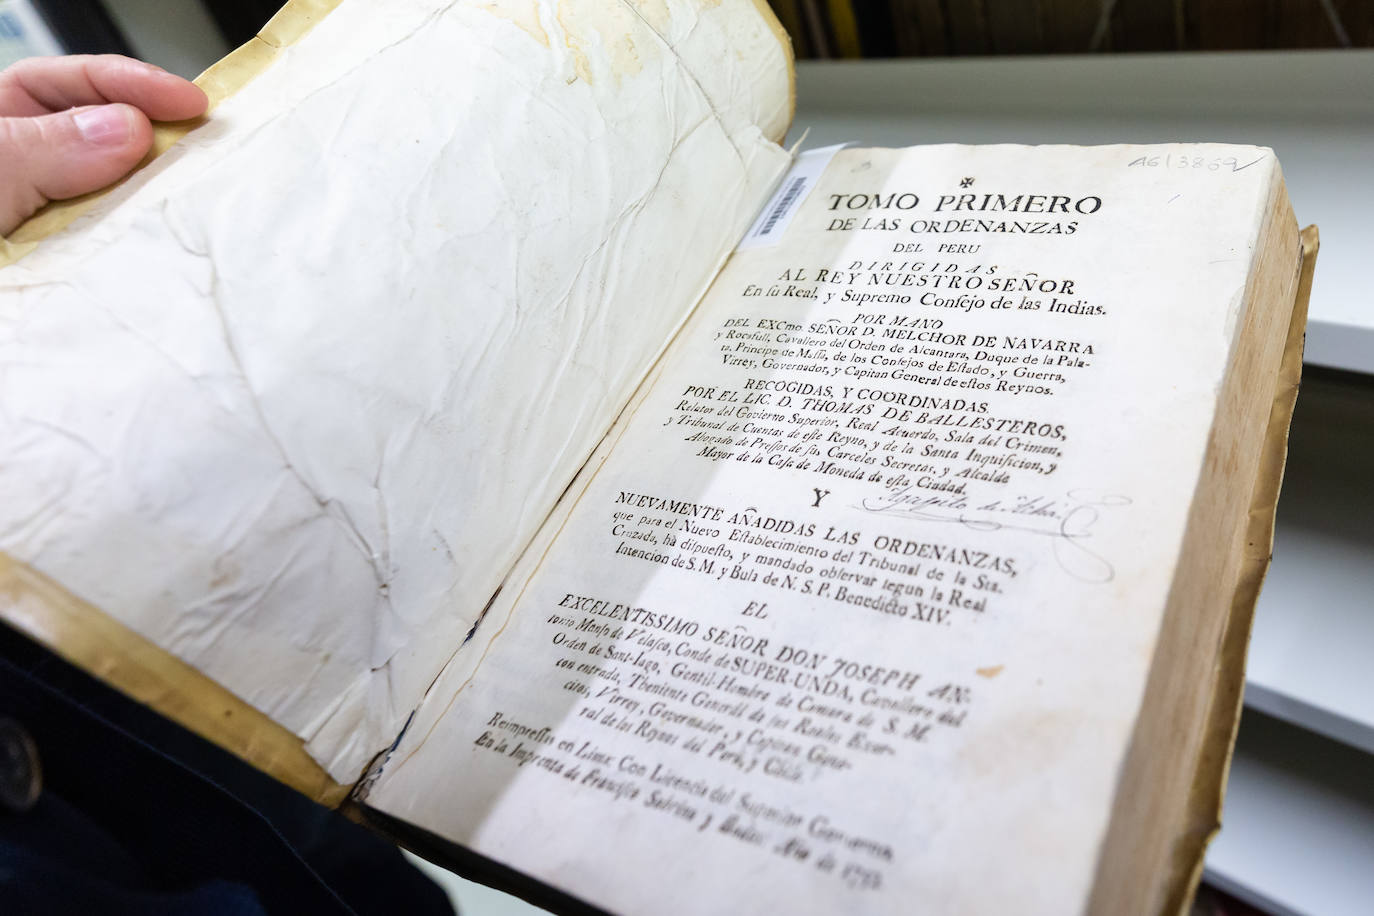 A6/3869
✠
TOMO PRIMERO
DE LAS ORDENANZAS
DEL PERU
DIRIGIDAS
AL REY NUESTRO SEÑOR
En ſu Real, y Supremo Conſejo de las Indias.
POR MANO
DEL EXCmo. SEÑOR D. MELCHOR DE NAVARRA
y Rocafull, Cavallero del Orden de Alcantara, Duque de la Pala-
ta, Principe de Maſſa, de los Conſejos de Eſtado, y Guerra,
Virrey, Governador, y Capitan General de eſtos Reynos.
RECOGIDAS, Y COORDINADAS.
POR EL LIC. D. THOMAS DE BALLESTEROS,
Relator del Govierno Superior, Real Acuerdo, Sala del Crimen,
y Tribunal de Cuentas de eſte Reyno, y de la Santa Inquiſicion, y
Abogado de Preſſos de ſus Carceles Secretas, y Alcalde
Mayor de la Caſa de Moneda de eſta Ciudad.
Y
Agapito de
NUEVAMENTE AÑADIDAS LAS ORDENANZAS,
que para el Nuevo Eſtablecimiento del Tribunal de la Sta.
Cruzada, hà diſpueſto, y mandado obſervar ſegun la Real
Intencion de S. M. y Bula de N. S. P. Benedicto XIV.
EL
EXCELENTISSIMO SEÑOR DON JOSEPH AN-
tonio Manſo de Velaſco, Conde de SUPER-UNDA, Cavallero del
Orden de Sant-Iago, Gentil-Hombre de Camara de S. M.
con entrada, Theniente General de los Reales Exer-
citos, Virrey, Governador, y Capitan Gene-
ral de los Reynos del Perù, y Chile.
Reimpreſſas en Lima: Con Licencia del Supremo Govierno
En la Imprenta de Franciſco Sobrino y Bados: Año de 1752.